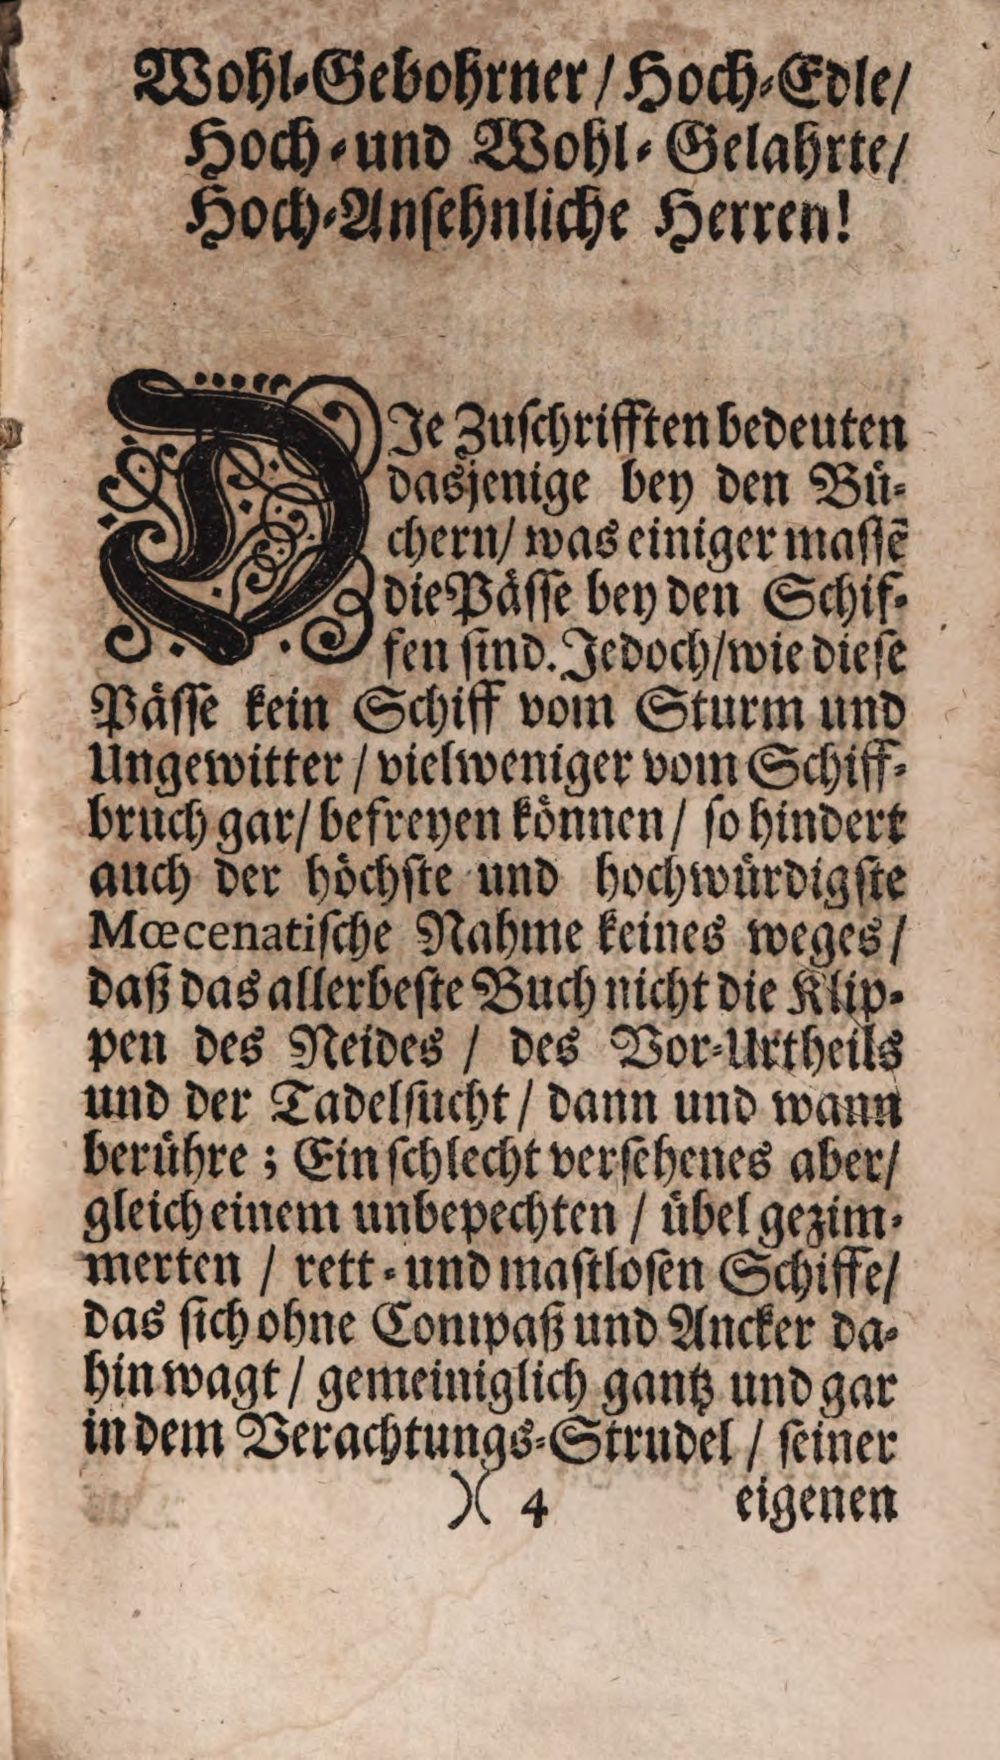 Wohl-Gebohrner/ Hoch-Edle/
Hoch- und Wohl-Gelahrte/
Hoch-Ansehnliche Herren!
DIe Zuschrifften bedeuten
dasjenige bey den Bü-
chern/ was einiger massē
die Pässe bey den Schif-
fen sind. Jedoch/ wie diese
Pässe kein Schiff vom Sturm und
Ungewitter / vielweniger vom Schiff-
bruch gar/ befreyen können / so hindert
auch der höchste und hochwürdigste
Mœcenatische Nahme keines weges /
daß das allerbeste Buch nicht die Klip-
pen des Neides / des Vor-Urtheils
und der Tadelsucht / dann und wann
berühre ; Ein schlecht versehenes aber/
gleich einem unbepechten / übel gezim-
merten / rett- und mastlosen Schiffe/
das sich ohne Compaß und Ancker da-
hin wagt / gemeiniglich gantz und gar
in dem Verachtungs-Strudel / seiner
)( 4 eigenen